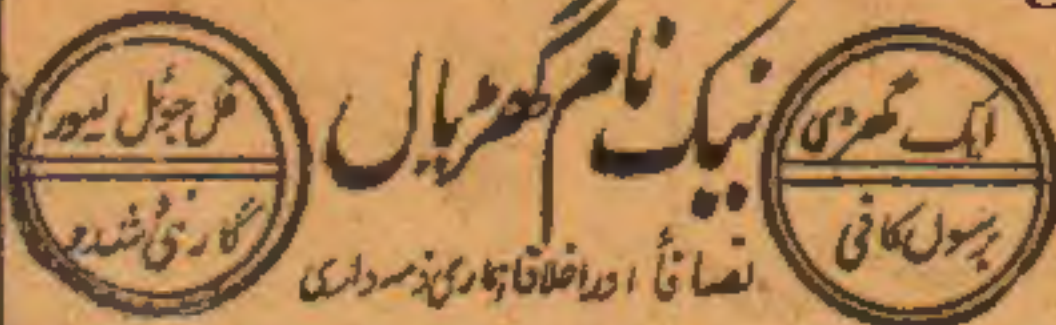 ایک گھڑی
برسوں کافی
نیک نام گھڑیاں
انصافاً اور اخلاقاً ہماری ذمہ داری
فل جوئل لیور
گارنٹی شدہ